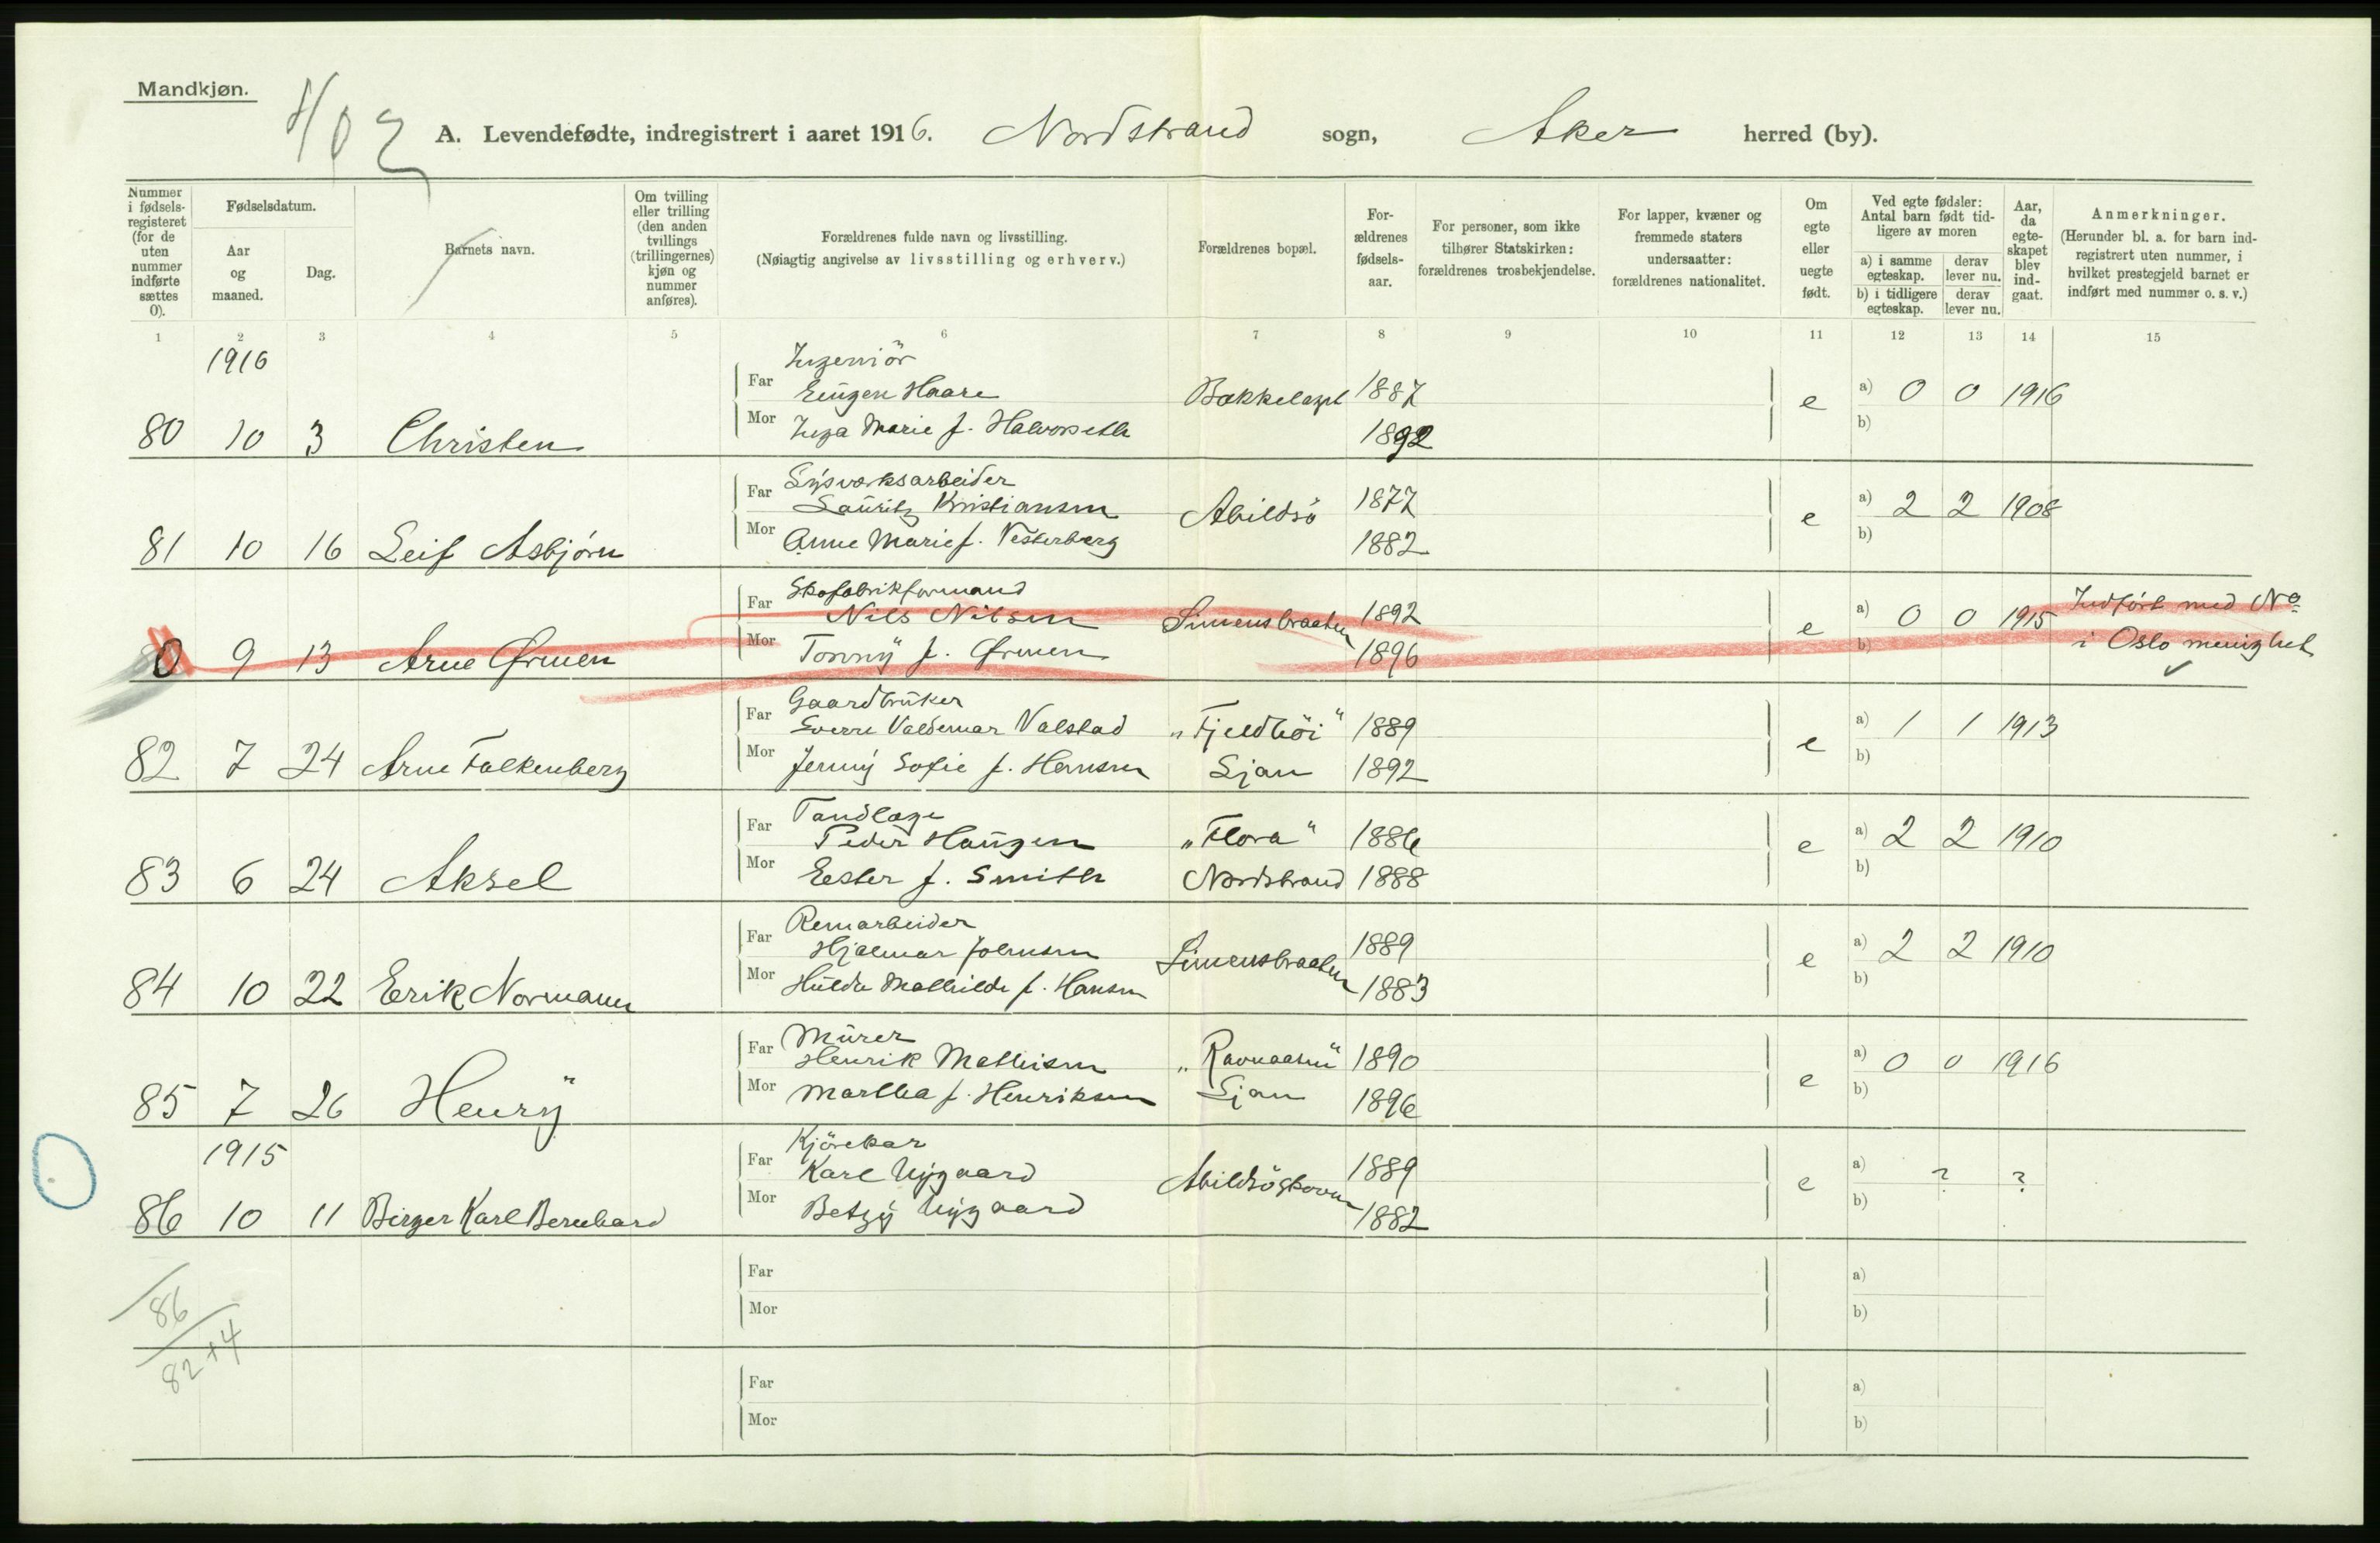 Mandkjøn.
A. Levendefødte, indregistrert i aaret 1916. Nordstrand sogn, Aker herred (by).
Nummer i fødsels-registeret (for de uten nummer indførte sættes 0).
Fødselsdatum.
Aar og maaned.
Dag.
Barnets navn.
Om tvilling eller trilling (den anden tvillings (trillingernes) kjøn og nummer anføres).
Forældrenes fulde navn og livsstilling.
(Nøiagtig angivelse av livsstilling og erhverv.)
Forældrenes bopæl.
For-ældrenes fødsels-aar.
For personer, som ikke tilhører Statskirken: forældrenes trosbekjendelse.
For lapper, kvæner og fremmede staters undersaatter: forældrenes nationalitet.
Om egte eller uegte født.
Ved egte fødsler: Antal barn født tid-ligere av moren
a) i samme egteskap. derav lever nu.
b) i tidligere egteskap. derav lever nu.
Aar, da egte-skapet blev ind-gaat.
Anmerkninger.
(Herunder bl. a. for barn ind-registrert uten nummer, i hvilket prestegjeld barnet er indført med nummer o. s. v.)
1 2 3 4 5 6 7 8 9 10 11 12 13 14 15
1916
Ingeniör
Far Eugen Haare Bækkelaget 1887
80 10 3 Christen e a) 0 0 1916
Mor Inga Marie f. Halvorseth 1892 b)
Lysverksarbeider
Far Lauritz Kristiansen Abildsö 1877
81 10 16 Leif Asbjørn e a) 2 2 1908
Mor Anne Marie f. Vesterberg 1882 b)
Skofabrikformand
Far Nils Nilsen Simensbraaten 1892
0 9 13 Arne Ørmen e a) 0 0 1915 Indført med No
Mor Tonny f. Ørmen 1896 b) i Oslo menighet
Gaardbruker
Far Sverre Valdemar Valstad "Fjeldhöi" 1889
82 7 24 Arne Falkenberg e a) 1 1 1913
Mor Jenny Sofie f. Hansen Ljan 1892 b)
Tandlæge
Far Peder Haugen "Flora" 1886
83 6 24 Aksel e a) 2 2 1910
Mor Ester f. Smith Nordstrand 1888 b)
Remarbeider
Far Hjalmar Johnsen Simensbraaten 1889
84 10 22 Erik Normann e a) 2 2 1910
Mor Hulda Mathilde f. Hansen 1883 b)
Murer
Far Henrik Mathisen "Ravnaasen" 1890
85 7 26 Henry e a) 0 0 1916
Mor Martha f. Henriksen Ljan 1896 b)
1915
Kjörekar
Far Karl Nygaard Abildsöskoven 1889
86 10 11 Birger Karl Bernhard e a) ? ?
Mor Betzy Nygaard 1882 b)
Far a)
Mor b)
86
82+4
Far a)
Mor b)